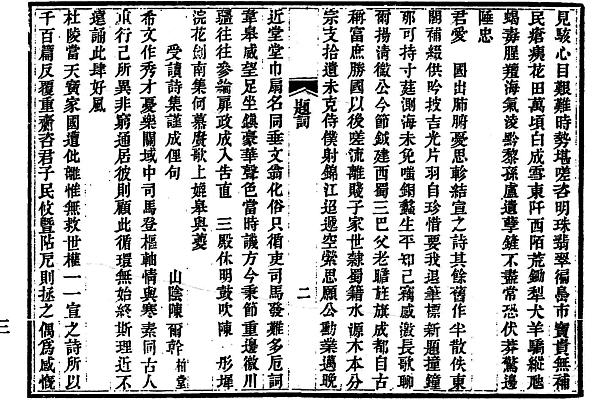 見駭心目艱難時勢堪嗟咨明珠翡翠福島市寶貴無補
民瘡痍花田萬頃白成雪東阡西陌荒鋤犁犬羊驕縱虺
蝎毒腥羶海氣淩黔黎孫盧遺孽雖不盡常恐伏莽驚邊
陲忠
君愛　國出肺腑憂思軫結宣之詩其餘舊作半散佚東
關補綴供吟披吉光片羽自珍惜要我退筆標新題撞鐘
那可持寸莛測海未免嗤銅蠡生平知己竊感激長歌聊
爾揚清徽公今節鉞建西蜀三巴父老瞻旌旗成都自古
稱富庶勝國以後嗟流離賤子家世隸蜀籍水源木本分
宗支拾遺未克侍僕射錦江迢遞空縈思願公勳業邁晚
題詞
二
近堂堂巾扇名同垂文翁化俗只循吏司馬發難多厄詞
韋皋威望足坐鎮豪華聲色當時議方今秉節重邊徼川
疆往往參論扉政成入告直　三殿休明鼓吹陳　彤墀
浣花劍南集何慕賡歌上媲皋與夔
受讀詩集謹成俚句
山陰陳爾幹　柏堂
希文作秀才憂樂關域中司馬登樞軸情與寒素同古人
重行己所異非窮通居彼則顧此循環無始終斯理近不
遠誦此肆好風
杜陵當天寶家國遭仳離惟無救世權一一宣之詩所以
千百篇反覆重齎咨君子民攸曁阽危則拯之偶爲感慨
三